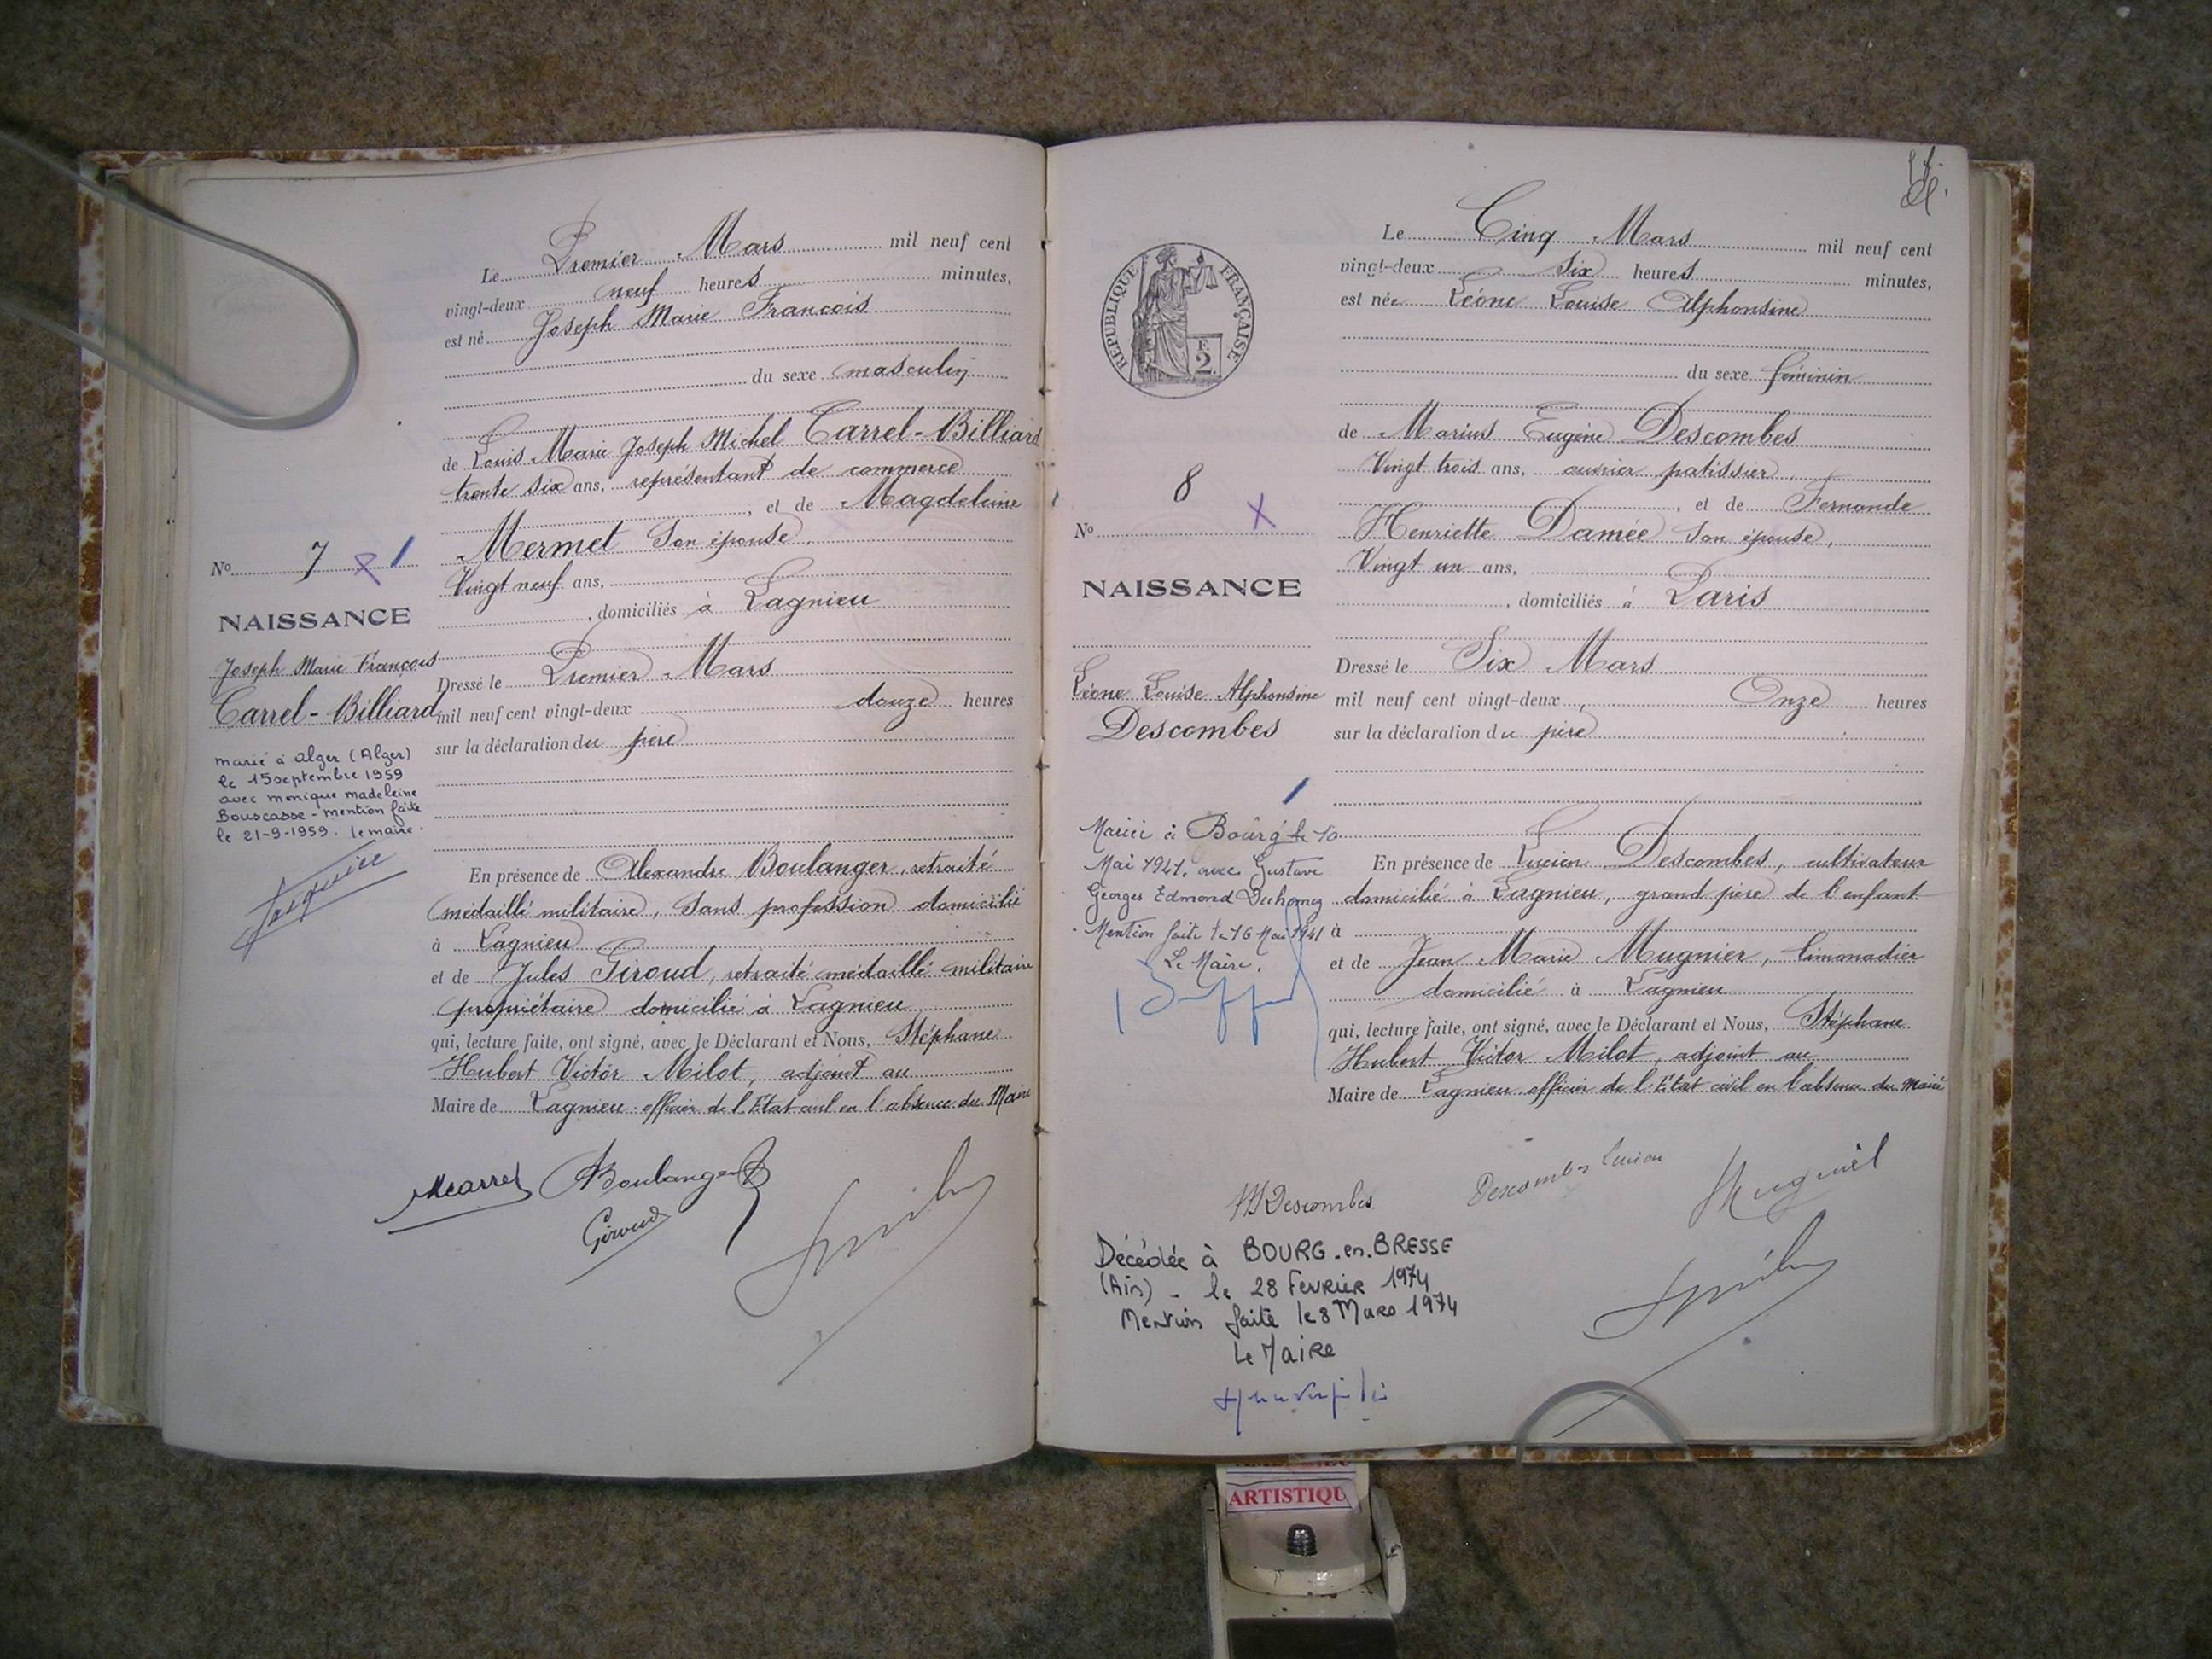 Le Premier Mars mil neuf cent
vingt-deux neuf heures minutes,
est né Joseph Marie François
du sexe masculin
de Louis Marie Joseph Michel Carrel-Billiard
trente six ans, représentant de commerce
, et de Magdeleine
Mermet son épouse,
Vingt neuf ans,
, domiciliés à Lagnieu
Dressé le Premier Mars
mil neuf cent vingt-deux douze heures
sur la déclaration du père
En présence de Alexandre Boulanger, retraité
médaillé militaire, sans profession domicilié
à Lagnieu
et de Jules Giroud, retraité médaillé militaire
propriétaire domicilié à Lagnieu
qui, lecture faite, ont signé, avec le Déclarant et Nous, Stéphane
Hubert Victor Milot, adjoint au
Maire de Lagnieu officier de l'Etat civil en l'absence du Maire
No 7
NAISSANCE
Joseph Marie François
Carrel-Billiard
marié à Alger (Alger)
le 15 septembre 1959
avec monique madeleine
Bouscasse - mention faite
le 21-9-1959. le maire.
Boulanger
Giroud
REPUBLIQUE FRANÇAISE
F.
2
Le Cinq Mars mil neuf cent
vingt-deux six heures minutes,
est née Léone Louise Alphonsine
du sexe féminin
de Marius Eugène Descombes
Vingt trois ans, ouvrier patissier,
, et de Fernande
Henriette Damée son épouse,
Vingt un ans,
, domiciliés à Paris
Dressé le Six Mars
mil neuf cent vingt-deux, Onze heures
sur la déclaration du père
En présence de Lucien Descombes, cultivateur
domicilié à Lagnieu, grand père de l'enfant
à
et de Jean Marie Mugnier, limonadier
domicilié à Lagnieu
qui, lecture faite, ont signé, avec le Déclarant et Nous, Stéphane
Hubert Victor Milot, adjoint au
Maire de Lagnieu officier de l'Etat civil en l'absence du Maire
No 8
NAISSANCE
Léone Louise Alphonsine
Descombes
Mariée à Bourg le 10
Mai 1941, avec Gustave
Georges Edmond
Mention faite le 16 Mai 1941
Le Maire,
Descombes
Descombes Lucien
Décédée à BOURG-en-BRESSE
(Ain) - le 28 Février 1974
Mention faite le 8 Mars 1974
Le Maire
ARTISTIQU